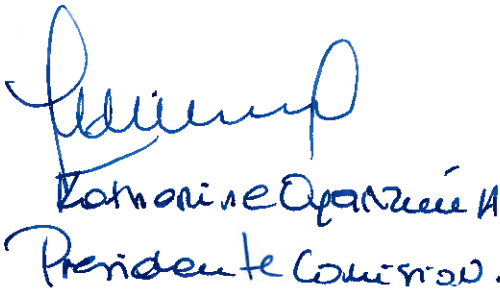 Katherine Oyarzún H
Presidente Comision.